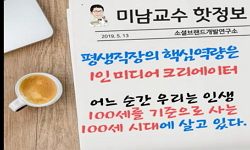 미남교수 핫정보
2019. 5. 13
소셜브랜드개발연구소
평생직장의 핵심역량은
1인 미디어 크리에이터
어느 순간 우리는 인생
100세를 기준으로 사는
100세 시대에 살고 있다.